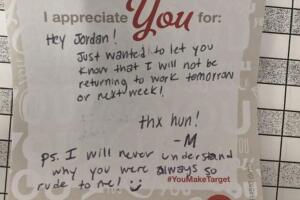 I appreciate You for:
Hey Jordan!
Just wanted to let you
know that I will not be
returning to work tomorrow
or next week!
thx hun!
-M
Ps. I will never understand
why you were always so
rude to me!
#YouMakeTarget